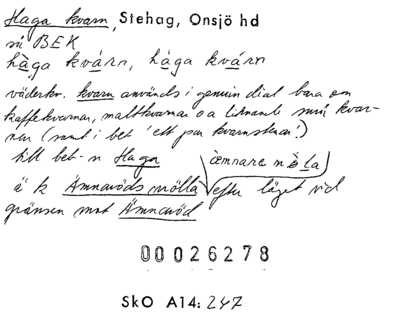 Haga kvarn, Stehag, Onsjö hd
si BEK
hàga kvárn, hàga kvárn
väderkv. kvarn används i genuin dial bara om
kaffekvarnar, maltkvarnar o a liknande små kvar-
nar (samt i bet 'ett par kvarnstenar')
till bet-n Haga
ämnarø mø̀la
ä k Ämnaröds mölla efter läget vid
gränsen mot Ämnaröd
00026278
SkO A14: 247